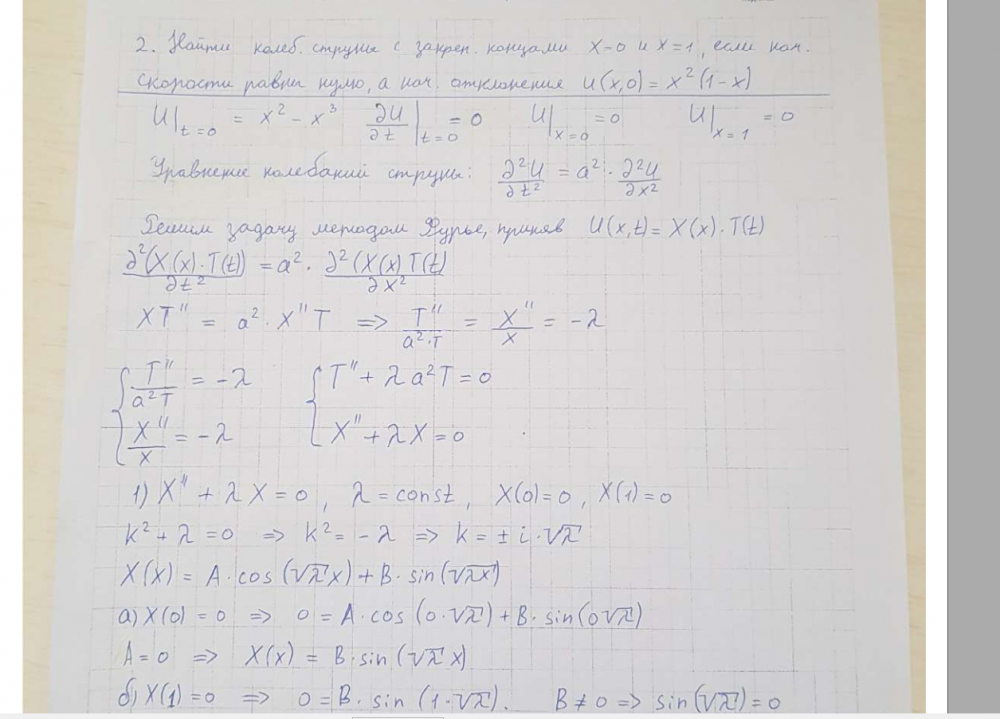 2. Найти колеб. струны с закреп. концами x=0 и x=1, если нач.
скорости равны нулю, а нач. отклонения U(x,0) = x²(1-x)
U|t=0 = x² - x³ ∂U/∂t|t=0 = 0 U|x=0 = 0 U|x=1 = 0
Уравнение колебаний струны: ∂²U/∂t² = a² · ∂²U/∂x²
Решим задачу методом Фурье, приняв U(x,t) = X(x)·T(t)
∂²(X(x)·T(t))/∂t² = a² · ∂²(X(x)T(t)/∂x²
XT'' = a² · X''T => T''/a²·T = X''/X = -λ
{ T''/a²T = -λ { T'' + λa²T = 0
X''/X = -λ X'' + λX = 0
1) X'' + λX = 0, λ = const, X(0) = 0, X(1) = 0
k² + λ = 0 => k² = -λ => k = ± i·√λ
X(x) = A·cos(√λ x) + B·sin(√λx)
а) X(0) = 0 => 0 = A·cos(0·√λ) + B·sin(0√λ)
A = 0 => X(x) = B·sin(√λ x)
б) X(1) = 0 => 0 = B·sin(1·√λ). B ≠ 0 => sin(√λ) = 0